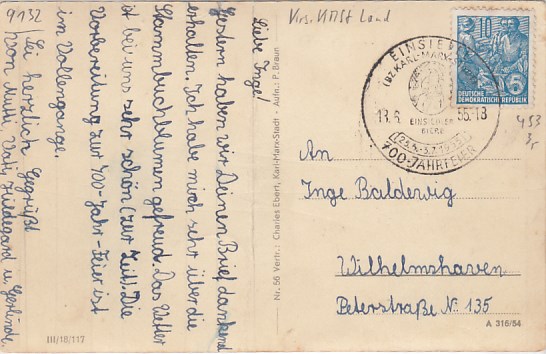 9132
Vrs. KMSt Land
Liebe Inge!
Gestern haben wir Deinen Brief dankend
erhalten. Ich habe mich sehr über die
Stammbuchblumen gefreut. Das Wetter
ist bei uns sehr schön (zur Zeit). Die
Vorbereitung zur 700-Jahr-Feier ist
im Vollen gange.
Sei herzlich Gegrüßt
von Mutti, Vati, Hildegard u. Gerlinde.
III/18/117
Nr. 56 Vertr.: Charles Ebert, Karl-Marx-Stadt - Aufn.: P. Braun
EINSIEDEL
(BZ. KARL-MARX-STADT)
13.6. 55.-18
EINSIEDLER
BIERE
700-JAHRFEIER
DEUTSCHE
DEMOKRATISCHE REPUBLIK
5
453
An
Inge Baldewig
Wilhelmshaven
Peterstraße No 135
A 316/54